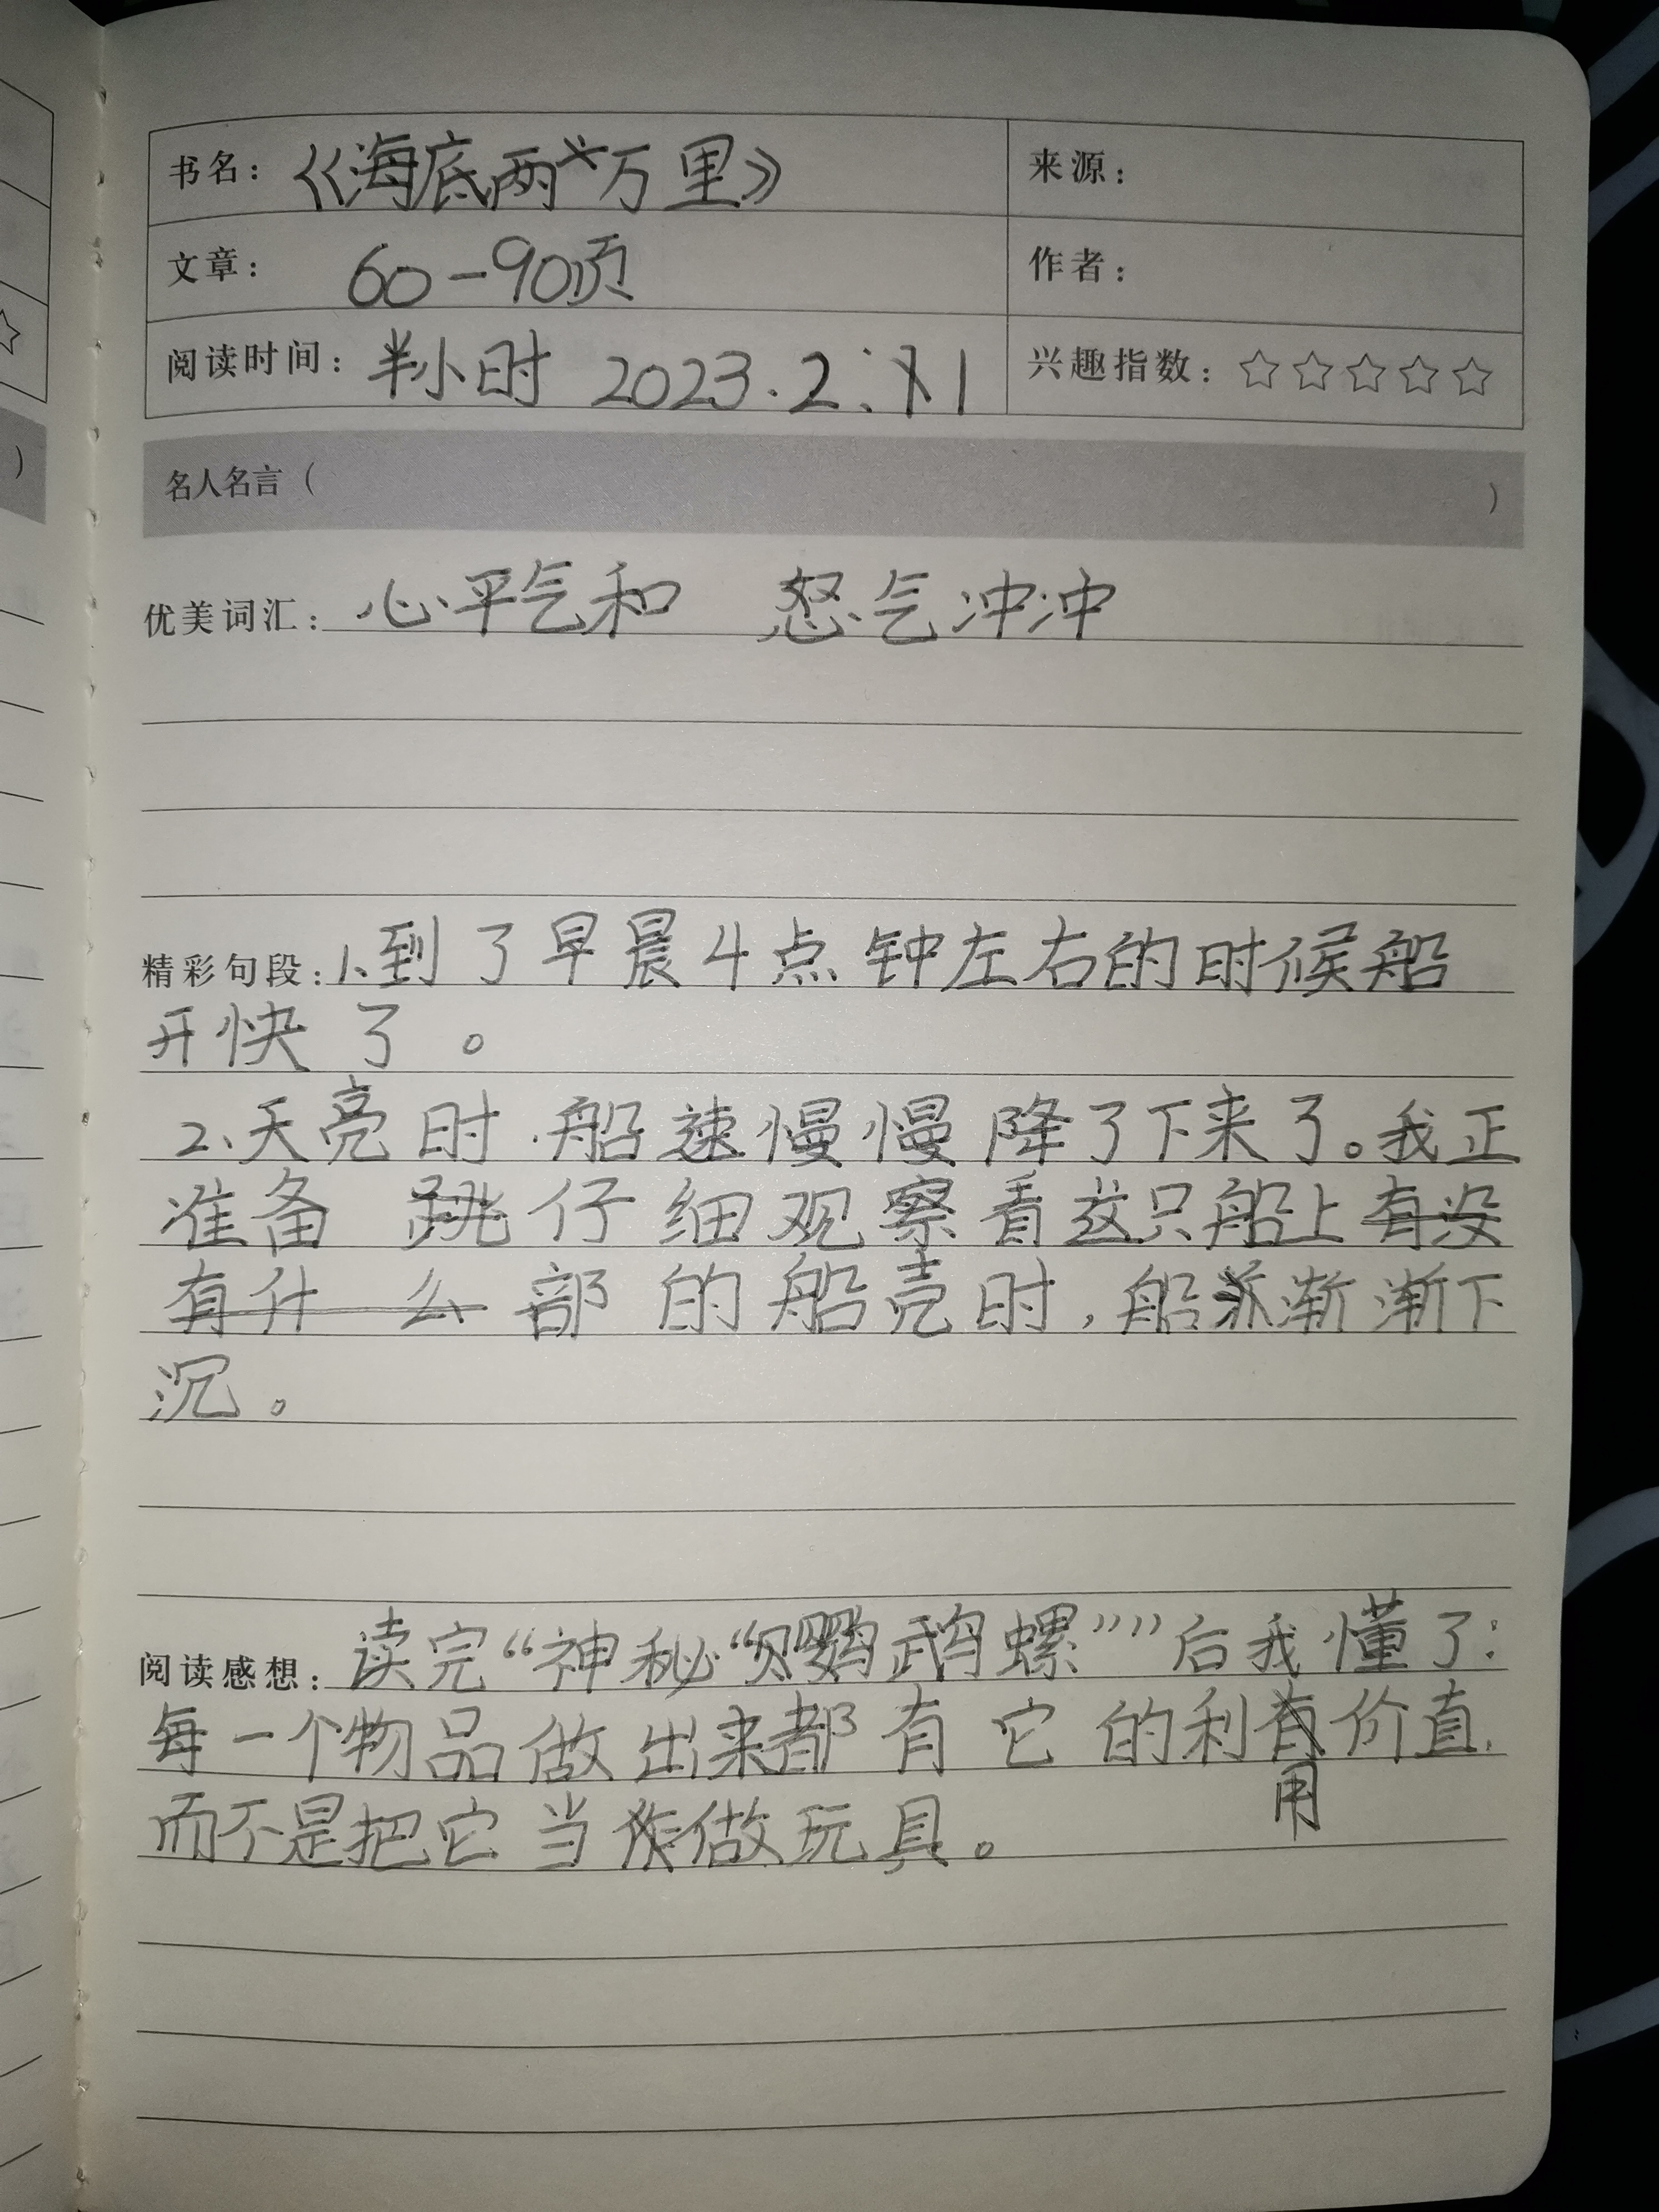 书名：《海底两万里》
来源：
文章：60-90页
作者：
阅读时间：半小时 2023.2.11
兴趣指数：☆☆☆☆☆
名人名言（ ）
优美词汇：心平气和 怒气冲冲
精彩句段：1、到了早晨4点钟左右的时候船
开快了。
2、天亮时.船速慢慢降了下来了。我正
准备仔细观察看这只船上
部的船壳时，船渐渐下
沉。
阅读感想：读完“神秘“鹦鹉螺””后我懂了：
每一个物品做出来都有它的利用价直，
而不是把它当做玩具。